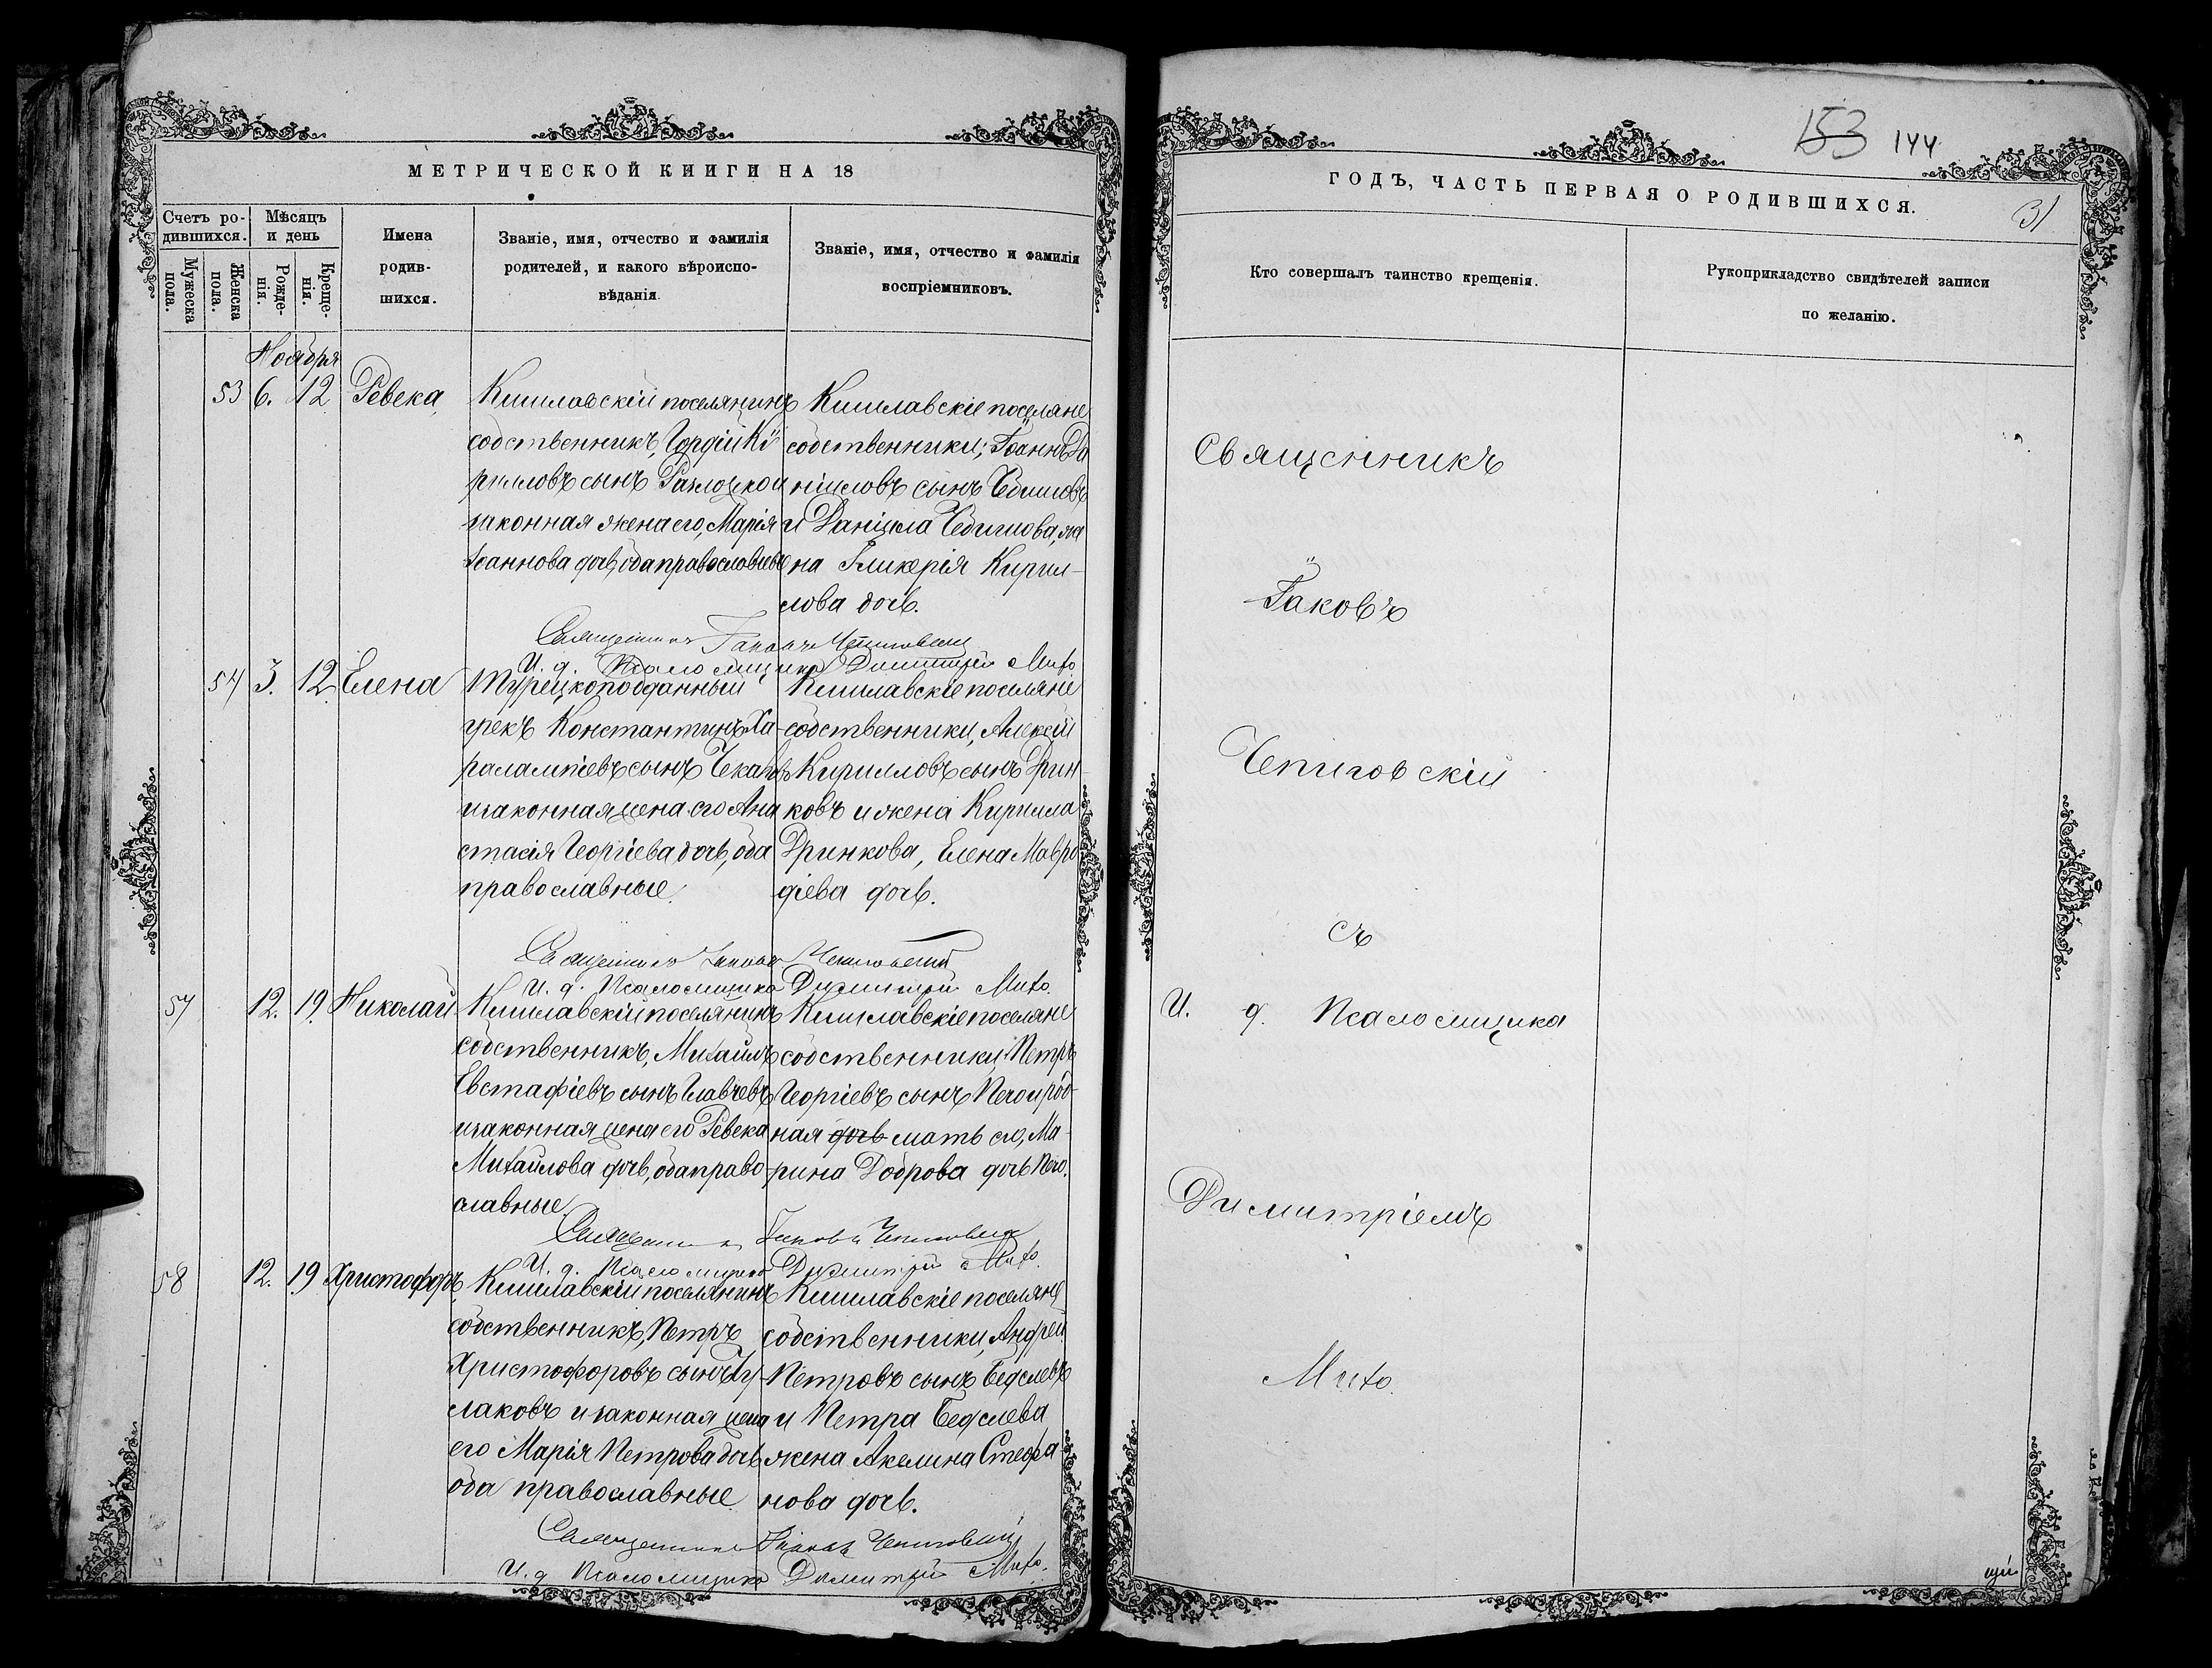 МЕТРИЧЕСКОЙ КНИГИ НА 18
Счетъ ро-
дившихся.
Мужеска
пола.
Женска
пола.
Мѣсяцъ
и день
Рожде-
нія.
Креще-
нія.
Имена
родив-
шихся.
Званіе, имя, отчество и фамилія
родителей, и какого вѣроиспо-
вѣданія.
Званіе, имя, отчество и фамилія
воспріемниковъ.
Ноября
53 6. 12 Ревека
Кишлавскій поселянинъ
собственникъ, Гордій Ки
рилловъ сынъ и
законная жена его, Марія
Іоаннова дочь, оба православные
Кишлавскіе поселяне
собственники; Іоаннъ Да
ніиловъ сынъ
и Даніила жа
на Гликерія Кирил-
лова дочь.
Священникъ Іаковъ Чепиговскій
И. д. Псаломщика Димитрій Михо
54 3. 12 Елена
Турецкоподданный
грекъ Константинъ Ха-
ралампіевъ сынъ
и законная жена его Ана
стасія Георгіева дочь, оба
православные.
Кишлавскіе поселяне
собственники, Алексій
Кирилловъ сынъ Дрин-
ковъ и жена Кирилла
Дринкова, Елена Мавро
діева дочь.
Священникъ Іаковъ Чепиговскій
И. д. Псаломщика Димитрій Михо.
57 12. 19. Николай
Кишлавскій поселянинъ
собственникъ, Михаилъ
Евстафіевъ сынъ Главчевъ
и законная жена его Ревека
Михайлова дочь, оба право-
славные
Кишлавскіе поселяне
собственники, Петръ
Георгіевъ сынъ и род-
ная дочь мать его, Ма-
рина Доброва дочь
Священникъ Іаковъ Чепиговскій
И. д. Псаломщика Димитрій Михо.
58 12. 19 Христофоръ
Кишлавскій поселянинъ
собственникъ, Петръ
Христофоровъ сынъ
лаковъ и законная жена
его Марія Петрова дочь
оба православные
Кишлавскіе поселяне
собственники, Андрей
Петровъ сынъ
и Петра
жена Акелина Стефа-
нова дочь.
Священникъ Іаковъ Чепиговскій
И. д Псаломщика Димитрій Михо.
153 144
ГОДЪ, ЧАСТЬ ПЕРВАЯ О РОДИВШИХСЯ.
31
Кто совершалъ таинство крещенія.
Рукоприкладство свидѣтелей записи
по желанію.
Священникъ
Іаковъ
Чепиговскій
съ
И. д. Псаломщика
Димитріемъ
Михо.